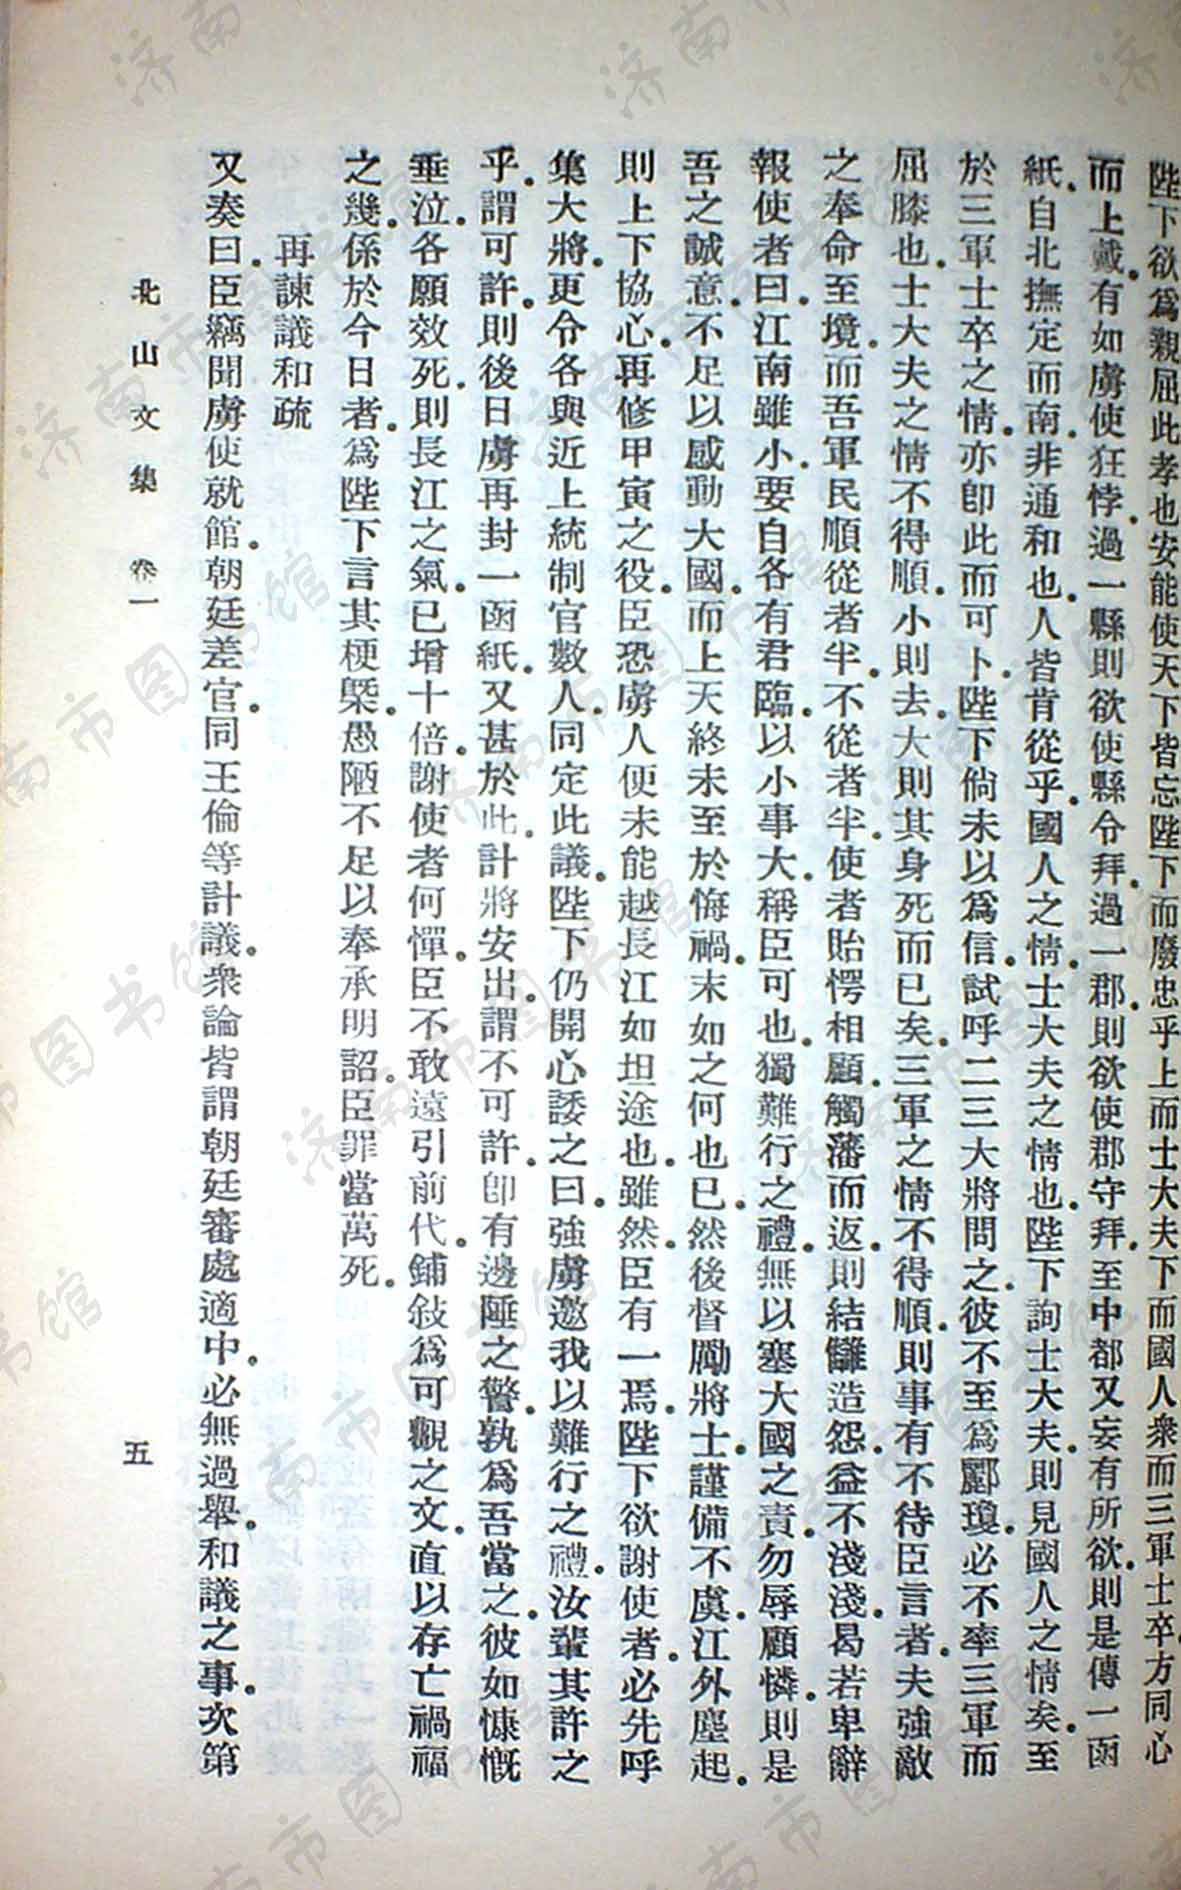 陛下欲爲親屈此孝也安能使天下皆忘陛下而廢忠乎上而士大夫下而國人衆而三軍士卒方同心
而上戴。有如虜使狂悖。過一縣則欲使縣令拜。過一郡。則欲使郡守拜。至中都又妄有所欲。則是傳一函
紙。自北撫定而南。非通和也。人皆肯從乎。國人之情。士大夫之情也。陛下詢士大夫。則見國人之情矣。至
於三軍士卒之情。亦卽此而可卜。陛下倘未以爲信。試呼二三大將問之。彼不至爲酈瓊。必不率三軍而
屈膝也。士大夫之情不得順。小則去。大則其身死而已矣。三軍之情不得順。則事有不待臣言者。夫強敵
之奉命至境。而吾軍民順從者半。不從者半。使者貽愕相顧。觸藩而返。則結讎造怨。益不淺淺。曷若卑辭
報使者曰。江南雖小。要自各有君臨。以小事大。稱臣可也。獨難行之禮。無以塞大國之責。勿辱顧憐。則是
吾之誠意。不足以感動大國。而上天終未至於悔禍。末如之何也已。然後督勵將士。謹備不虞。江外塵起。
則上下協心。再修甲寅之役。臣恐虜人便未能越長江如坦途也。雖然。臣有一焉。陛下欲謝使者。必先呼
集大將。更令各與近上統制官數人。同定此議。陛下仍開心諉之曰。強虜邀我以難行之禮。汝輩其許之
乎。謂可許。則後日虜再封一函紙。又甚於此。計將安出。謂不可許。卽有邊陲之警。孰爲吾當之。彼如慷慨
垂泣。各願效死。則長江之氣。已增十倍。謝使者何憚。臣不敢遠引前代。鋪敍爲可觀之文。直以存亡禍福
之幾。係於今日者。爲陛下言其梗槩。愚陋不足以奉承明詔。臣罪當萬死。
再諫議和疏
又奏曰。臣竊聞虜使就館。朝廷差官。同王倫等計議。衆論皆謂朝廷審處適中。必無過舉。和議之事。次第
北山文集 卷一
五
济南市图书馆